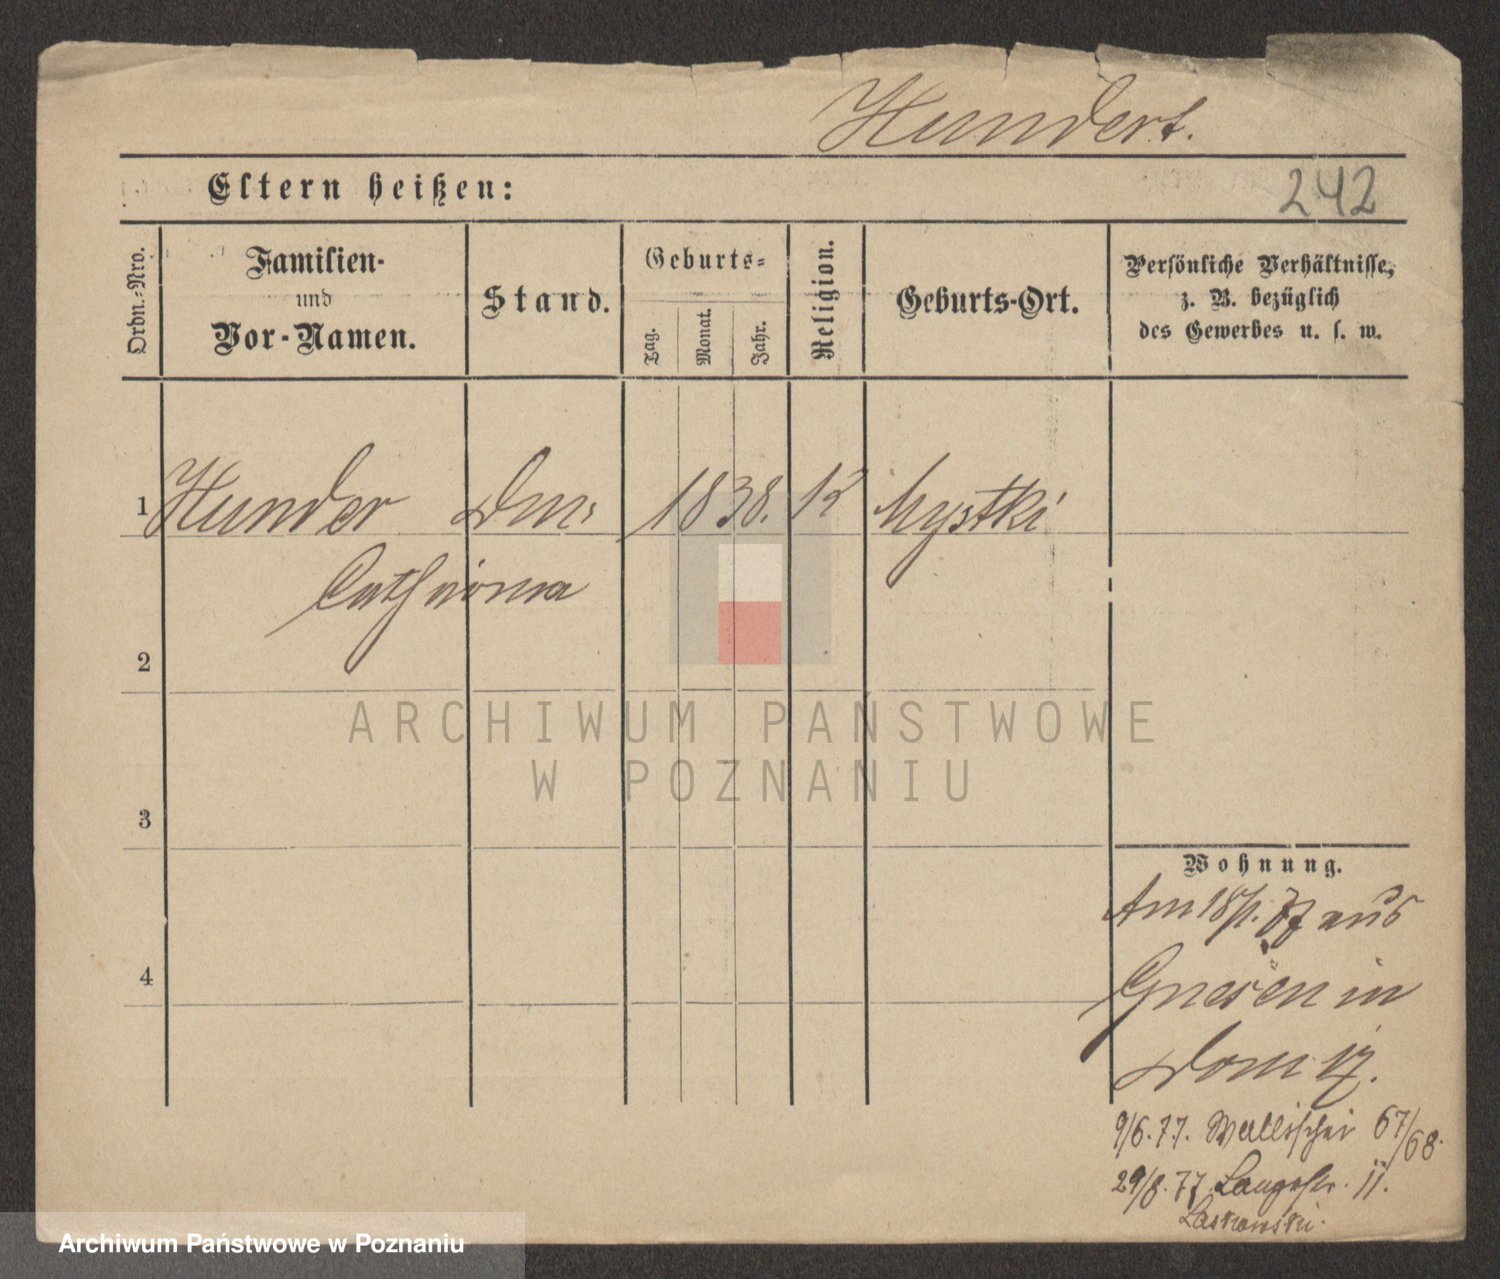 Hundert.
Eltern heißen:
242
Ordn.-Nro.
Familien-
und
Vor-Namen.
Stand.
Geburts-
Tag.
Monat.
Jahr.
Religion.
Geburts-Ort.
Persönliche Verhältnisse,
z. B. bezüglich
des Gewerbes u. s. w.
1 Hunder 1838. Mystki
Catharina
2
ARCHIWUM PAŃSTWOWE
W POZNANIU
3
Wohnung.
Am 18/1. 77 aus
4
Gnesen in
Dom 17.
9/6. 77. Wallischei 67/68.
29/8. 77. Langestr. 11.
Laskowski.
Archiwum Państwowe w Poznaniu